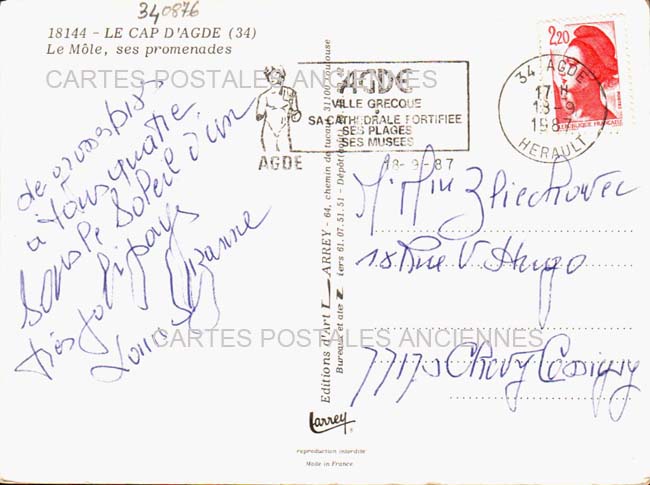 340876
18144 - LE CAP D'AGDE (34)
Le Môle, ses promenades
CARTES POSTALES ANCIENNES
de grosses bises
à tous quatre
Sous le Soleil d'un
très joli pays
Louis Suzanne
AGDE
AGDE
VILLE GRECQUE
SA CATHEDRALE FORTIFIEE
SES PLAGES
SES MUSEES
18-9-87
34 AGDE
17 H
18-9
1987
HERAULT
2,20
REPUBLIQUE FRANCAISE
Editions d'Art LARREY - 64, chemin de tucaut, 31100 toulouse
Bureaux et ateliers 61.07.51.51 - Dépôt
M. Mme
18 Rue V Hugo
77173 Chevry Cossigny
CARTES POSTALES ANCIENNES
Larrey
reproduction interdite
Made in France